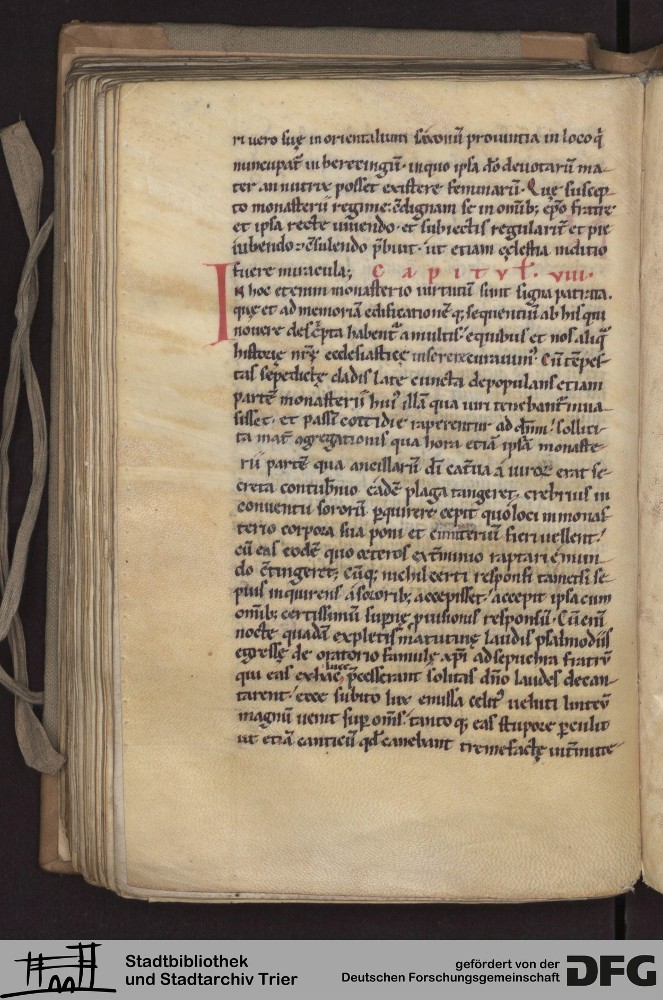 ri uero suę in orientaliũm saxonũ prouintia in loco q̇
nuncupat᷑ in berecingũ · in quo ipsa dõ deuotarũ ma-
ter an nutrix posset existere feminarũ · Quę suscep-
to monasterii regimine ↄdignam se in omīb; ep̃o fratre
et ipsa recte uiuendo · et subiectis regularit̃ et pie
iubendo ↄsulendo p̃buit · ut etiam cęlestia inditio
fuere miracula; Capitvl̃ · viii ·
In hoc etenim monasterio uirtutũ sunt signa patrata ·
quę et ad memoriã edificationẽ q; sequentiũ ab his qui
nouere desc̃pta habent᷑ a multis · e quibus et nos aliq̃
historię nr̃ę ecclesiasticę inserere curauim᷒ · Cũ tẽpes-
tas sępedictę cladis late cuncta depopulans etiam
partẽ monasterii hui᷒ illã qua uiri tenebant᷑ inua-
sisset · et passĩ cottidie raperentur ad dñm · solliti-
ta mat̃ ↄgregationis qua hora etiã ipsã monaste-
rii partẽ qua ancillarũ dī cat̃ua a uirorũ erat se-
creta contub̃nio eadẽ plaga tangeret · crebrius in
conuentu sororũ perquirere cepit quo loci in monas-
terio corpora sua poni et cimiteriũ fieri uellent ·
cũ eas eodẽ quo cęteros ext̃minio raptari e mun-
do ↄtingeret · Cũq; nichil certi responsi tametsi sę-
pius inquirens a sororib; accepisset · accepit ipsa cum
omīb; certissimũ sup̃nę p̃uisionis responsũ · Cũ enĩ
nocte quadã expletis matutinę laudis psalmodiis
egressę de oratorio famulę xp̃i ad sepulchra fratrũ
qui eas ex hac luce p̃cesserant solitas dño laudes decan-
tarent · ecce subito lux emissa celit᷒ ueluti linteũ
magnũ uenit sup̃ om̃s · tanto q; eas stupore perculit
ut etiã canticũ qd̃ canebant tremefactę int̃mitte-
Stadtbibliothek
und Stadtarchiv Trier
gefördert von der
Deutschen Forschungsgemeinschaft
DFG